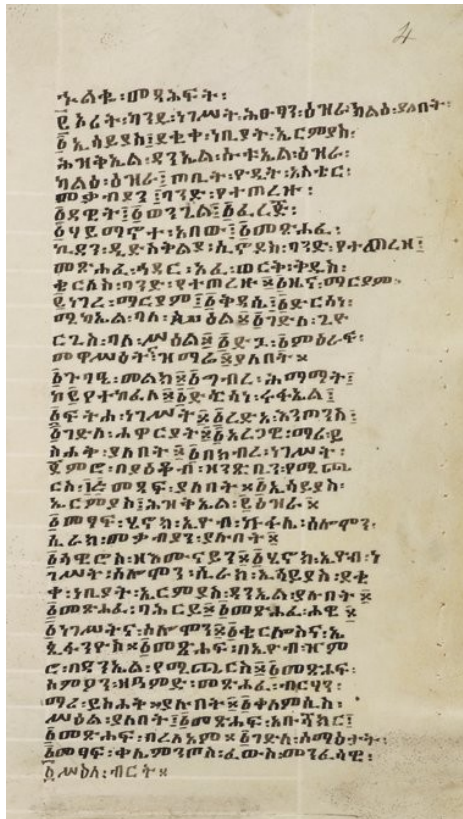 4
ኍልቁ፡መጻሕፍት፡
፪ኦሪት፡ካንዱ፡ነገሥት፡ሕዑፃን፡ዕዝራ፡ካልዕ፡ያለበት፡
፩ኢሳይያስ፤ደቂቀ፡ነቢያት፡ኤርምያስ፡
ሕዝቅኤል፡ዳንኤል፡ሱቱኤል፡ዕዝራ፡
ካልዕ፡ዕዝራ፤ጦቢት፡ዮዲት፡አስቴር፡
መቃብያን፤ባንድ፡የተጠረዙ፡
፩ዳዊት፤፩ወንጌል፤፩ፈረጅ፡
፩ሃይማኖተ፡አበው፤፩መጽሐፈ፡
ኪዳን፡ዲድስቅልያ፡ሲኖዶስ፡ባንድ፡የተጠረዘ፤
መጽሐፈ፡ኀዳር፡አፈ፡ወርቅ፡ቅዱስ፡
ቄርሎስ፡ባንድ፡የተጠረዙ፡፩ዜና፡ማርያም፡
፪ነገረ፡ማርያም፤፩ቅዳሴ፤፩ድርሳነ፡
ሚካኤል፡ባለ፡ሥዕል፡፩ገድለ፡ጊዮ
ርጊስ፡ባለ፡ሥዕል፡፩ድጓ፡፩ምዕራፍ፡
መዋሥዕት፤ዝማሬ፡ያለበት።
፩ጉባዔ፡መልክ፡፩ግብረ፡ሕማማት፤
ከ፪የተከፈለ፡፩ድርሳነ፡ሩፋኤል፤
፩ፍትሐ፡ነገሥት፡፩ረድአ፡እንጦንስ፤
፩ገድለ፡ሐዋርያት፡፩አረጋዊ፡ማሪ፡ይ
ስሐቅ፡ያለበት፡፩በከብረ፡ነገሥት፡
ርስ፡መጻፍ፡ያለበት።፩ኢሳይያስ፡
ኤርምያስ፤ሕዝቅኤል፡፪ዕዝራ።
፩መፃፍ፡ሄኖክ፡ኢዮብ፡ኩፋሌ፡ሰሎሞን፡
ሲራክ፡መቃብያን፡ያሉበት።
፩ሳዊሮስ፡ዘእሙናይን፡፩ሄኖክ፡ኢዮብ፡ነ
ገሥት፡ሰሎሞን፡ሲራክ፡ኢሳይያስ፡ደቂ
ቀ፡ነቢያት፡ኤርምያስ፡ዳንኤል፡ያሉበት።
፩መጽሐፈ፡ባሕርይ፡፩መጽሐፈ፡ሐዊ።
፩ነገሥትና፡ሰሎሞን፡፩ቄርሎስና፡ኤ
ጲፋንዮስ።፩መጽሐፍ፡በኢዮብ፡ዠም
ሮ፡በዳንኤል፡የሚጨርስ፡፩መጽሐፍ፡
አምዖን፡ዘዓምድ፡መጽሐፈ፡ብርሃን፡
ማሪ፡ይስሐቅ።ያሉበት፡፩ቀለምሲስ፡
ሥዕል፡ያለበት፤፩መጽሐፍ፡አቡሻክር፤
፩መጽሐፍ፡ብረለአም።፩ገድለ፡ሰማዕታት፡
፩መፃፍ፡ቀሌምንጦስ፡ፈውስ፡መንፈሳዊ፡
፩ሥዕለ፡ብርት።